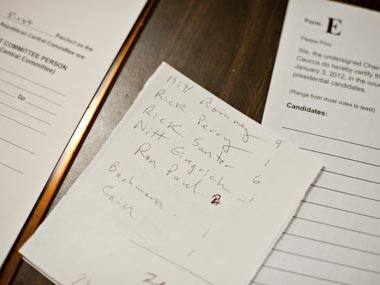 First
Precinct on the
Republican Central Committee are
COMMITTEE PERSON
Central Committee)
Zip
Mitt Romney 9
Rick Perry 1
Rick Santor 6
Nitt Gingrich 1
Ron Paul 2
Bachmann 1
Cain 1
Form E
Please Print
We, the undersigned Chair
Caucus do hereby certify the
January 3, 2012, in the cou
presidential candidates.
(Range from most votes to least)
Candidates: